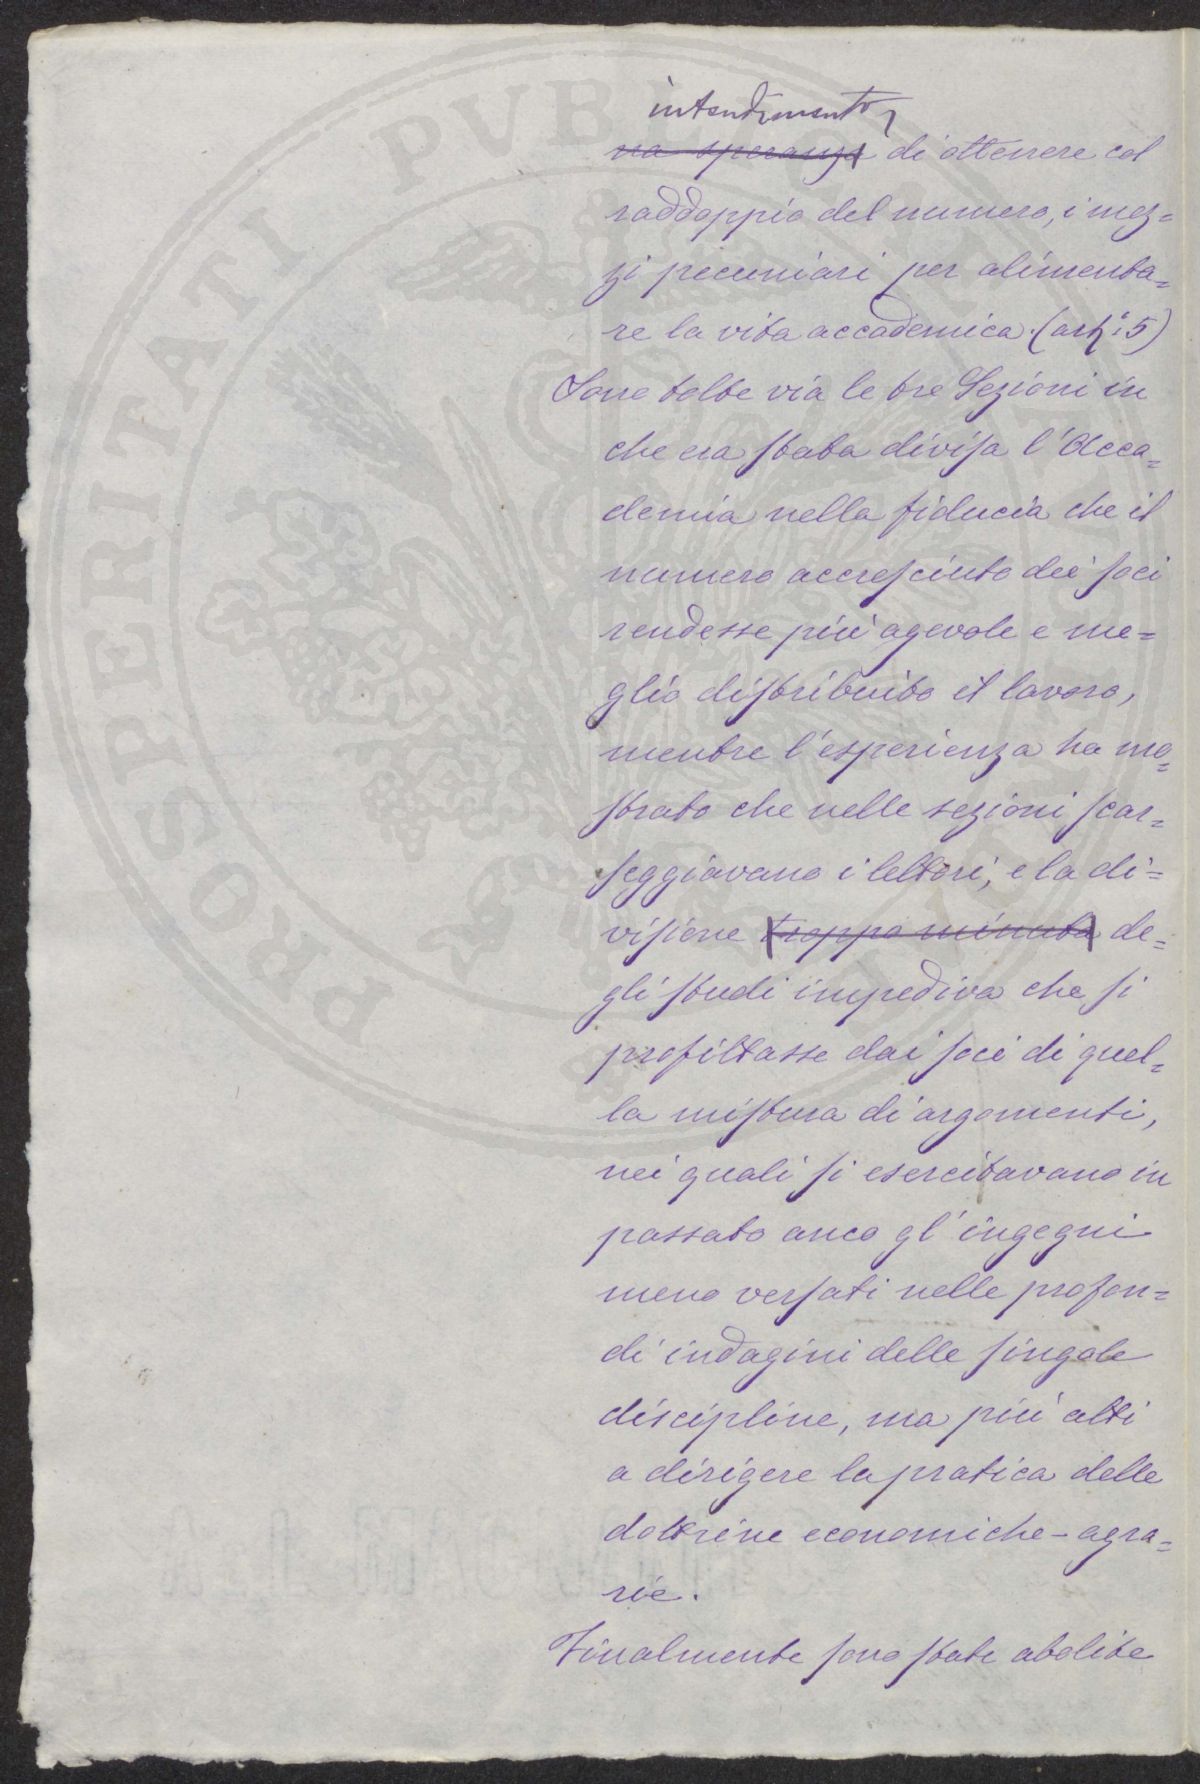 intendimento
na speranza di ottenere col
raddoppio del numero, i mez=
zi pecuniari per alimenta=
re la vita accademica. (art.i 5)
Sono tolte via le tre Sezioni in
che era stata divisa l'Acca=
demia nella fiducia che il
numero accresciuto dei soci
rendesse più agevole e me=
glio distribuito il lavoro,
mentre l'esperienza ha mo=
strato che nelle sezioni scar=
seggiavano i lettori, e la di=
visione troppo minuta de=
gli studi impediva che si
profittasse dai soci di quel=
la mistura di argomenti,
nei quali si esercitavano in
passato anco gl'ingegni
meno versati nelle profon=
di indagini delle singole
discipline, ma più atti
a dirigere la pratica delle
dottrine economiche-agra=
rie.
Finalmente sono state abolite
PROSPERITATI PUBLICAE